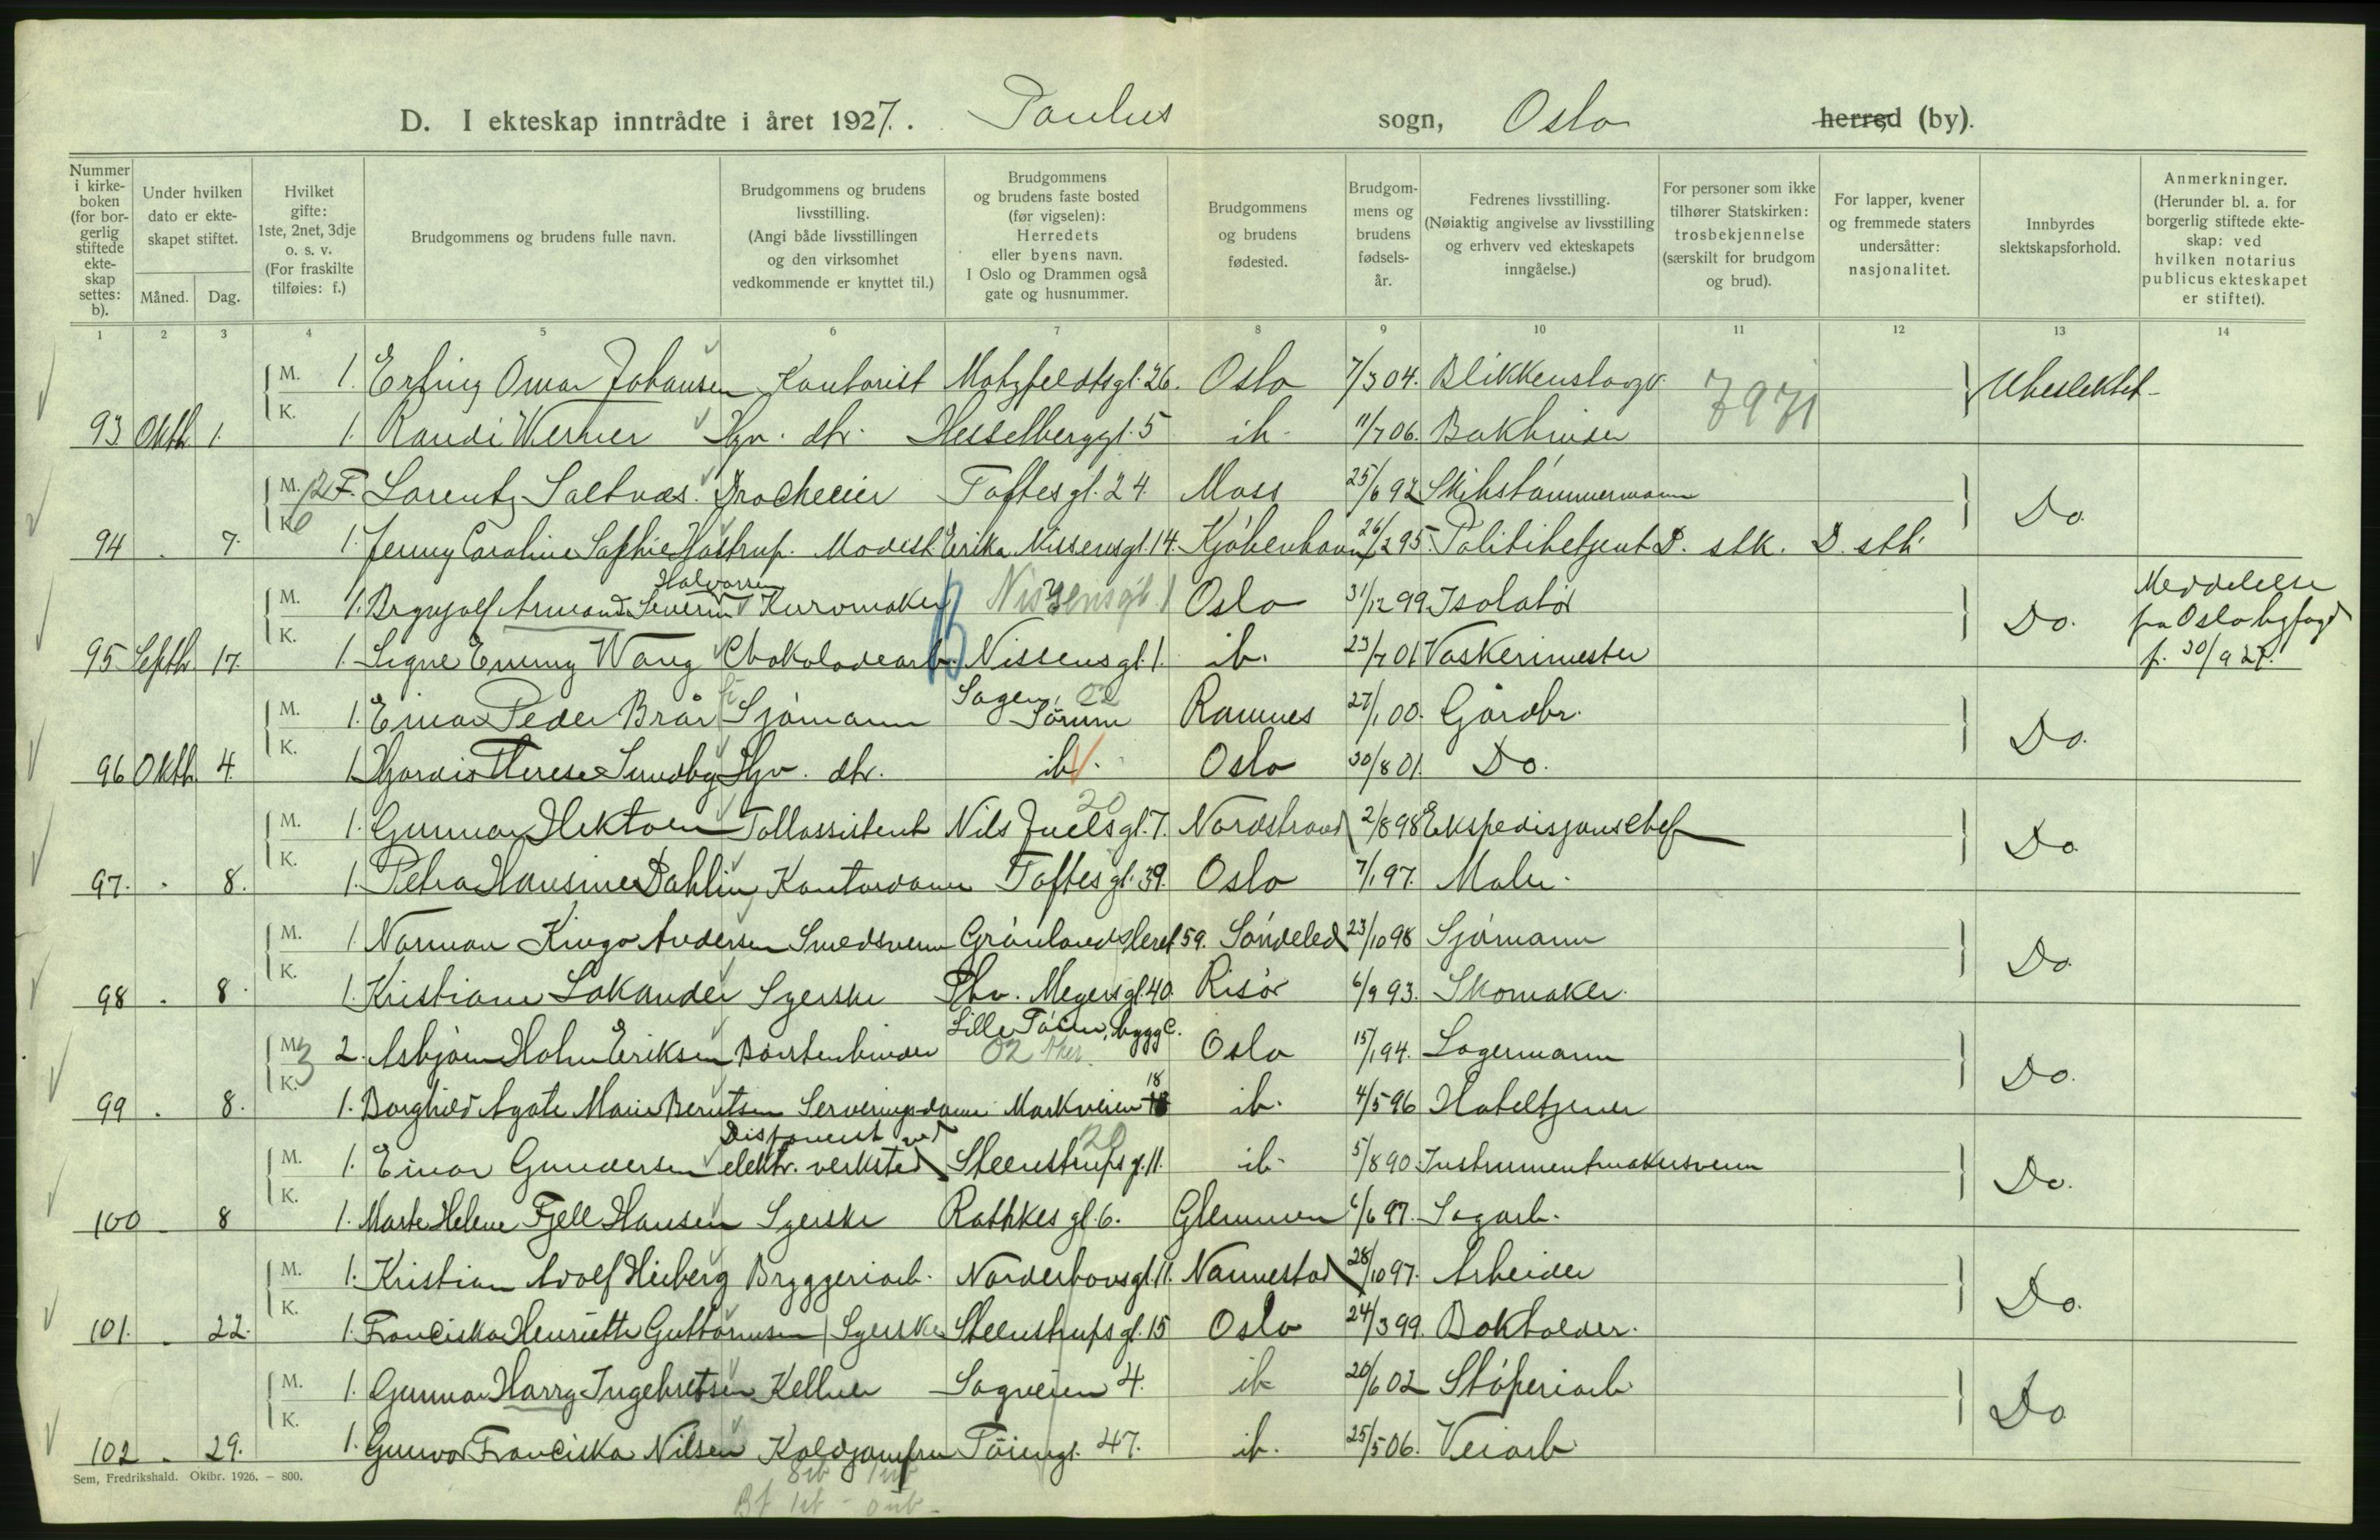 D. I ekteskap inntrådte i året 1927. Paulus sogn, Oslo herred (by).
Nummer i kirkeboken (for borgerlig stiftede ekteskap settes: b).
Under hvilken dato er ekteskapet stiftet.
Måned. Dag.
Hvilket gifte: 1ste, 2net, 3dje o. s. v. (For fraskilte tilføies: f.)
Brudgommens og brudens fulle navn.
Brudgommens og brudens livsstilling. (Angi både livsstillingen og den virksomhet vedkommende er knyttet til.)
Brudgommens og brudens faste bosted (før vigselen): Herredets eller byens navn. I Oslo og Drammen også gate og husnummer.
Brudgommens og brudens fødested.
Brudgommens og brudens fødselsår.
Fedrenes livsstilling. (Nøiaktig angivelse av livsstilling og erhverv ved ekteskapets inngåelse.)
For personer som ikke tilhører Statskirken: trosbekjennelse (særskilt for brudgom og brud).
For lapper, kvener og fremmede staters undersåtter: nasjonalitet.
Innbyrdes slektskapsforhold.
Anmerkninger. (Herunder bl. a. for borgerlig stiftede ekteskap: ved hvilken notarius publicus ekteskapet er stiftet).
1 2 3 4 5 6 7 8 9 10 11 12 13 14
M. 1. Erling Omar Johansen Kontorist Motzfeldtsgt. 26. Oslo 7/3 04. Blikkenslager 7971 Ubeslektet
93 Oktb. 1. K. 1. Randi Werner Hgv. dtr. Hesselberggt. 5 ib. 11/7 06. Bokbinder
M. 2 F. Lorentz Saltnes. Drosjeeier Toftesgt. 24. Moss 25/6 92 Skibstømmermann Do.
94 . 7. K. 1. Jenny Caroline Sophie Hastrup. Modist Erika Nissensgt. 14. Kjøbenhavn 26/2 95. Politibetjent D. stk. D. stb.
Halvorsen
M. 1. Brynjolf Armand Severin Kurvmaker Nissensgt. 1 Oslo 31/12 99 Isolatør Do. Meddelelse fra Oslo byfogd f. 30/9 27.
95 Septb. 17. K. 1. Signe Emmy Wang Chokoladearb. Nissensgt. 1. ib. 23/7 01 Vaskerimester
M. 1. Einar Peder Brår Sjømann Sagen, 02 Sørum Ramnes 27/1 00. Gårdbr. Do.
96 Oktb. 4. K. 1. Hjørdis Therese Sundby Hgv. dtr. ib. Oslo 30/8 01. Do.
M. 1. Gunnar Hektoen Tollassistent Nils Juelsgt. 7. 20 Nordstrand 2/8 98 Ekspedisjonschef Do.
97. . 8. K. 1. Petra Hansine Dahlin Kontordame Toftesgt. 39. Oslo 7/1 97. Maler.
M. 1. Norman Kingo Andersen Smedsvenn Grønlandsleret 59. Søndeled 23/10 98 Sjømann Do.
98 . 8. K. 1. Kristiane Lakander Syerske Thv. Meyersgt. 40. Risør 6/9 93. Skomaker.
M. 3 2. Asbjørn Holm Eriksen Børstenbinder Lille Tøien, bygg C. 02 Oslo 15/1 94. Lagermann Do.
99 . 8. K. 1. Borghild Agate Marie Berntsen Serveringsdame Markveien 18 ib. 4/5 96 Hotelltjener
M. 1. Einar Gundersen Disponent ved elektr. verksted Steenstrupsg. 11. 20 ib. 5/8 90. Instrumentmakersvenn Do.
100 . 8 K. 1. Marte Helene Fjell Hansen Syerske Rathkesgt. 6. Glemmen 6/6 97. Sagarb.
M. 1. Kristian Adolf Hieberg Bryggeriarb. Norderhovsgt. 11. Nannestad 28/10 97. Arbeider Do.
101. . 22. K. 1. Franciska Henriette Guttormsen Syerske Steenstrupsgt. 15 Oslo 24/3 99. Bokholder.
M. 1. Gunnar Harry Ingebretsen Kellner Sagveien 4. ib 20/6 02 Støperiarb. Do
102 . 29. K. 1. Gunvor Franciska Nilsen Koldjomfru Tøiengt. 47. ib. 25/5 06. Veiarb
Sem, Fredrikshald. Oktbr. 1926. – 800.